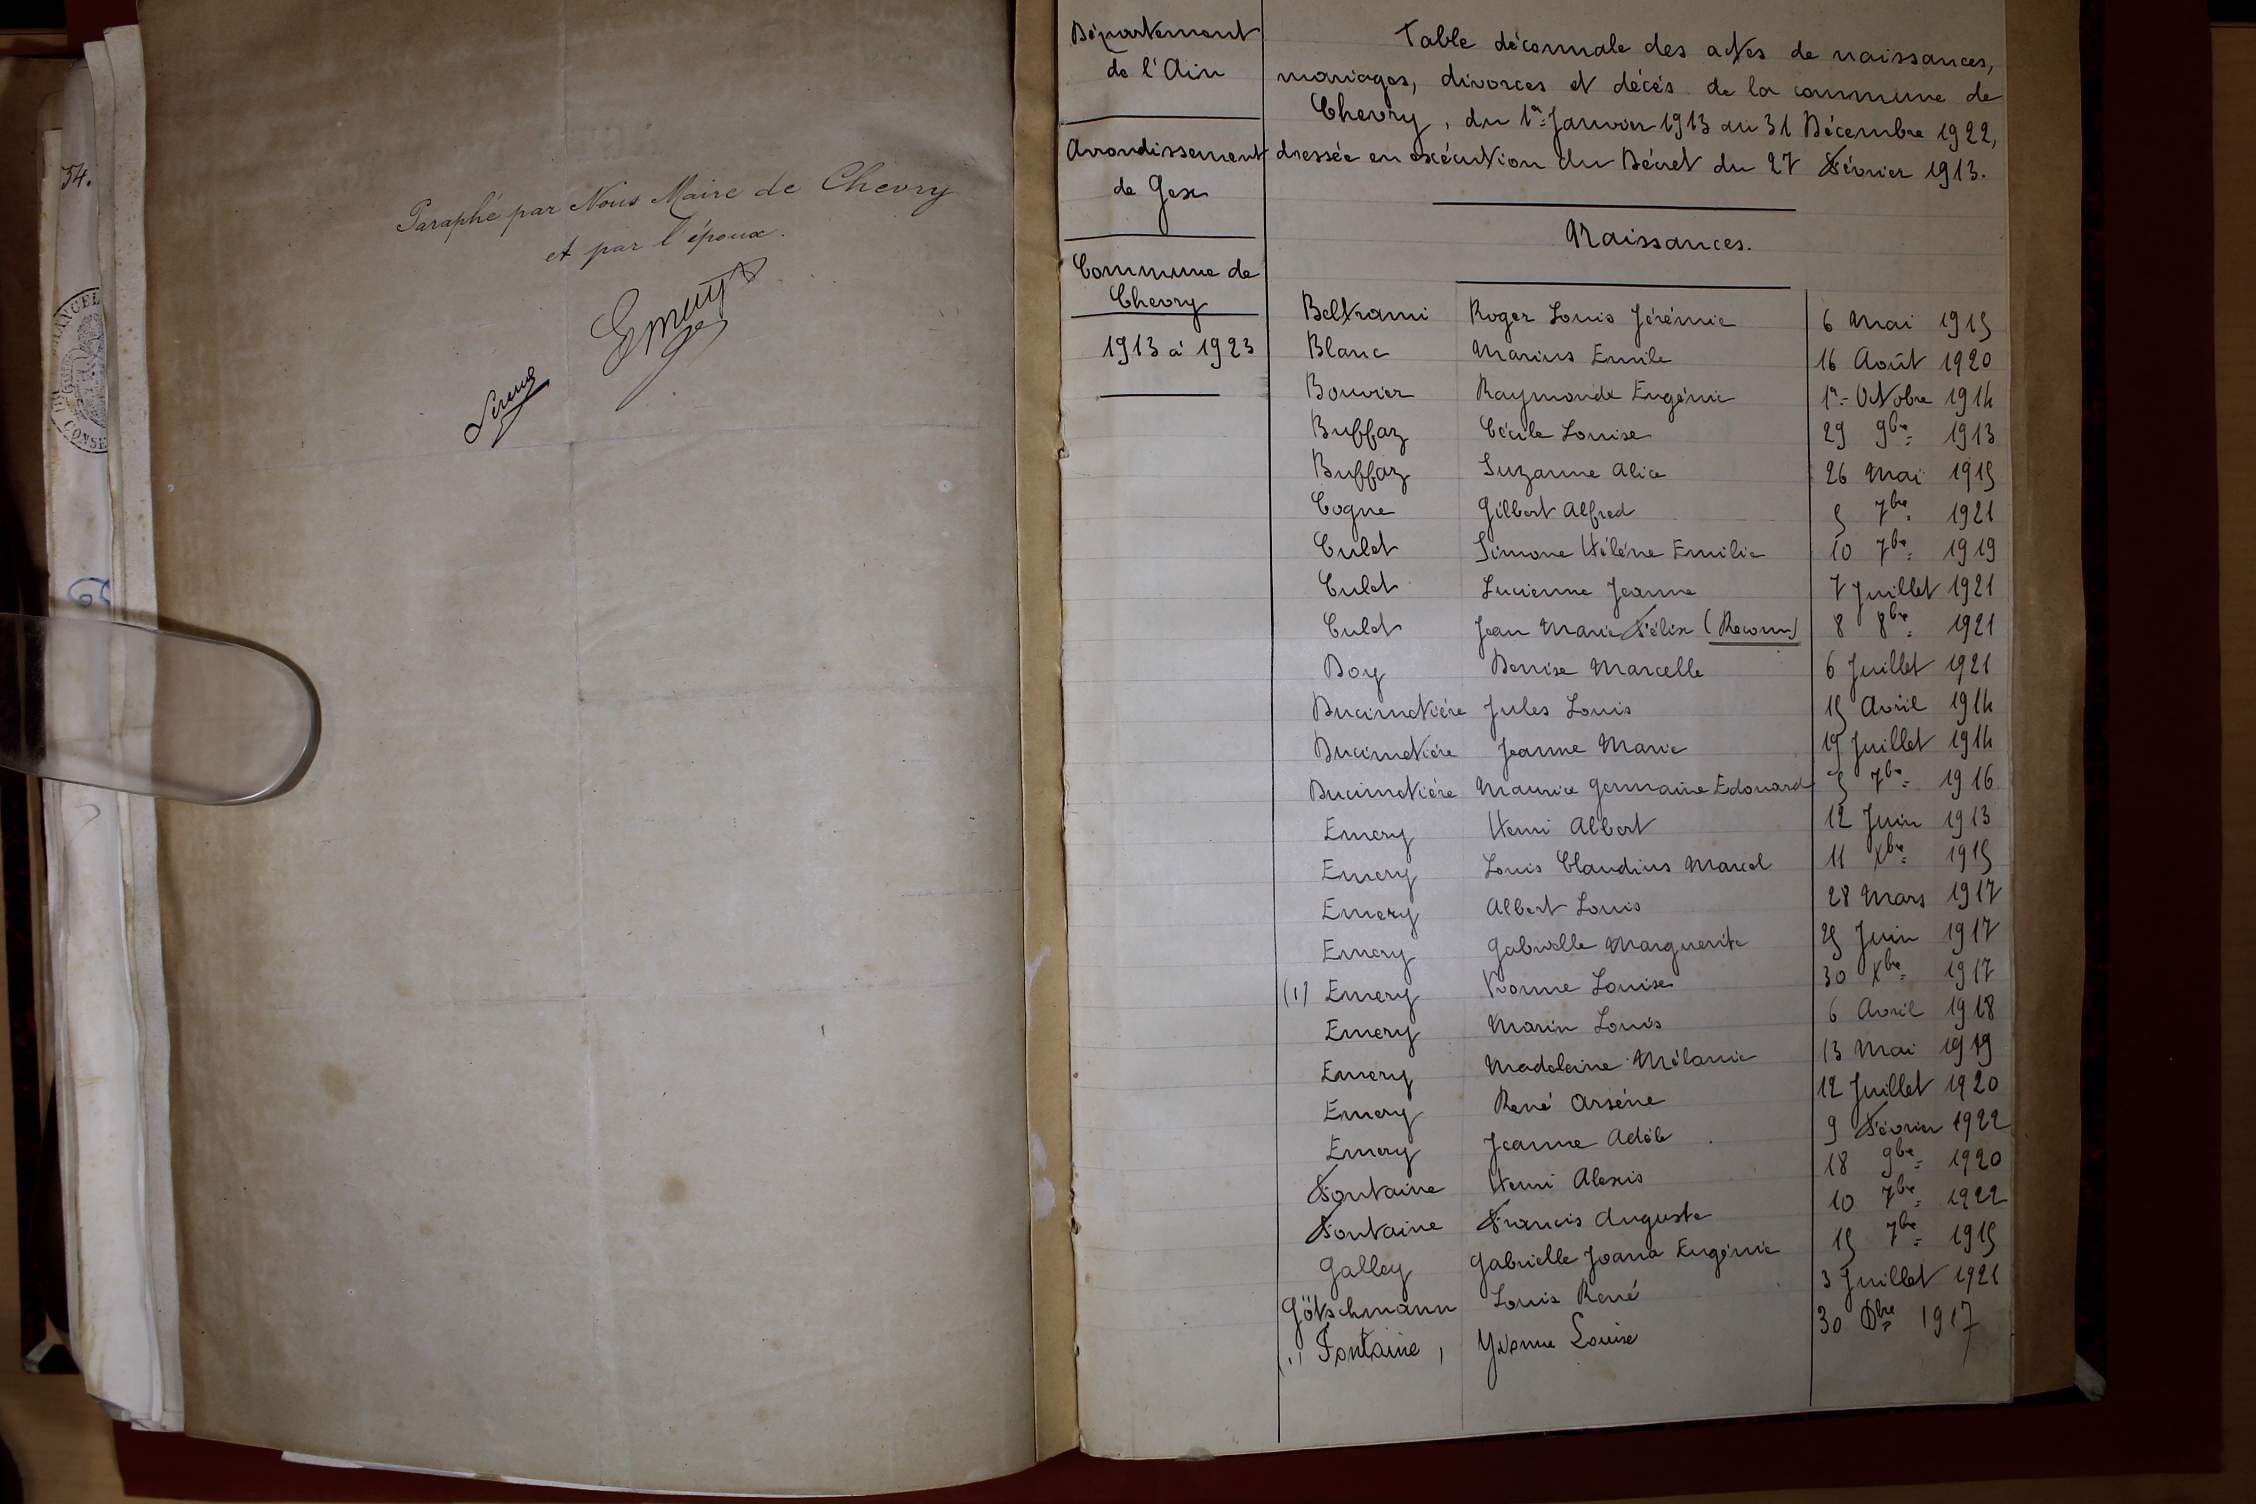 54.
Paraphé par Nous Maire de Chevry
et par l'époux.
Emery
65
CONSE
Département
de l'Ain
Arrondissement
de Gex
Commune de
Chevry
1913 à 1923
Table décennale des actes de naissances,
mariages, divorces et décès de la commune de
Chevry, du 1er Janvier 1913 au 31 Décembre 1922,
dressée en exécution du Décret du 27 Février 1913.
Naissances.
Beltrami Roger Louis Jérémie 6 Mai 1915
Blanc Marius Emile 16 Août 1920
Bouvier Raymonde Eugénie 1er Octobre 1914
Buffaz Cécile Louise 29 9bre 1913
Buffaz Suzanne Alice 26 Mai 1915
Cogne Gilbert Alfred 5 7bre 1921
Culet Simone Hélène Emilie 10 7bre 1919
Culet Lucienne Jeanne 7 Juillet 1921
Culet Jean Marie Félix (Reconn) 8 8bre 1921
Doy Denise Marcelle 6 Juillet 1921
Ducimetière Jules Louis 15 Avril 1914
Ducimetière Jeanne Marie 19 Juillet 1914
Ducimetière Maurice Germaine Edouard 5 7bre 1916
Emery Henri Albert 12 Juin 1913
Emery Louis Claudius Marcel 11 Xbre 1915
Emery Albert Louis 28 Mars 1917
Emery Gabrielle Marguerite 25 Juin 1917
(1) Emery Yvonne Louise 30 Xbre 1917
Emery Marin Louis 6 Avril 1918
Emery Madeleine Mélanie 13 Mai 1919
Emery René Arsène 12 Juillet 1920
Emery Jeanne Adèle 9 Février 1922
Fontaine Henri Alexis 18 9bre 1920
Fontaine Francis Auguste 10 7bre 1922
Galley Gabrielle Joana Eugénie 15 7bre 1915
Götschmann Louis René 3 Juillet 1921
(1) Fontaine, Yvonne Louise 30 Dbre 1917